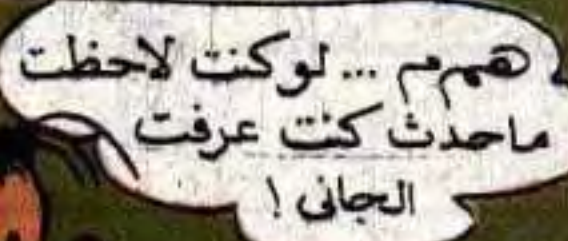 هممم ... لو كنت لاحظت
ماحدث كنت عرفت
الجانى !